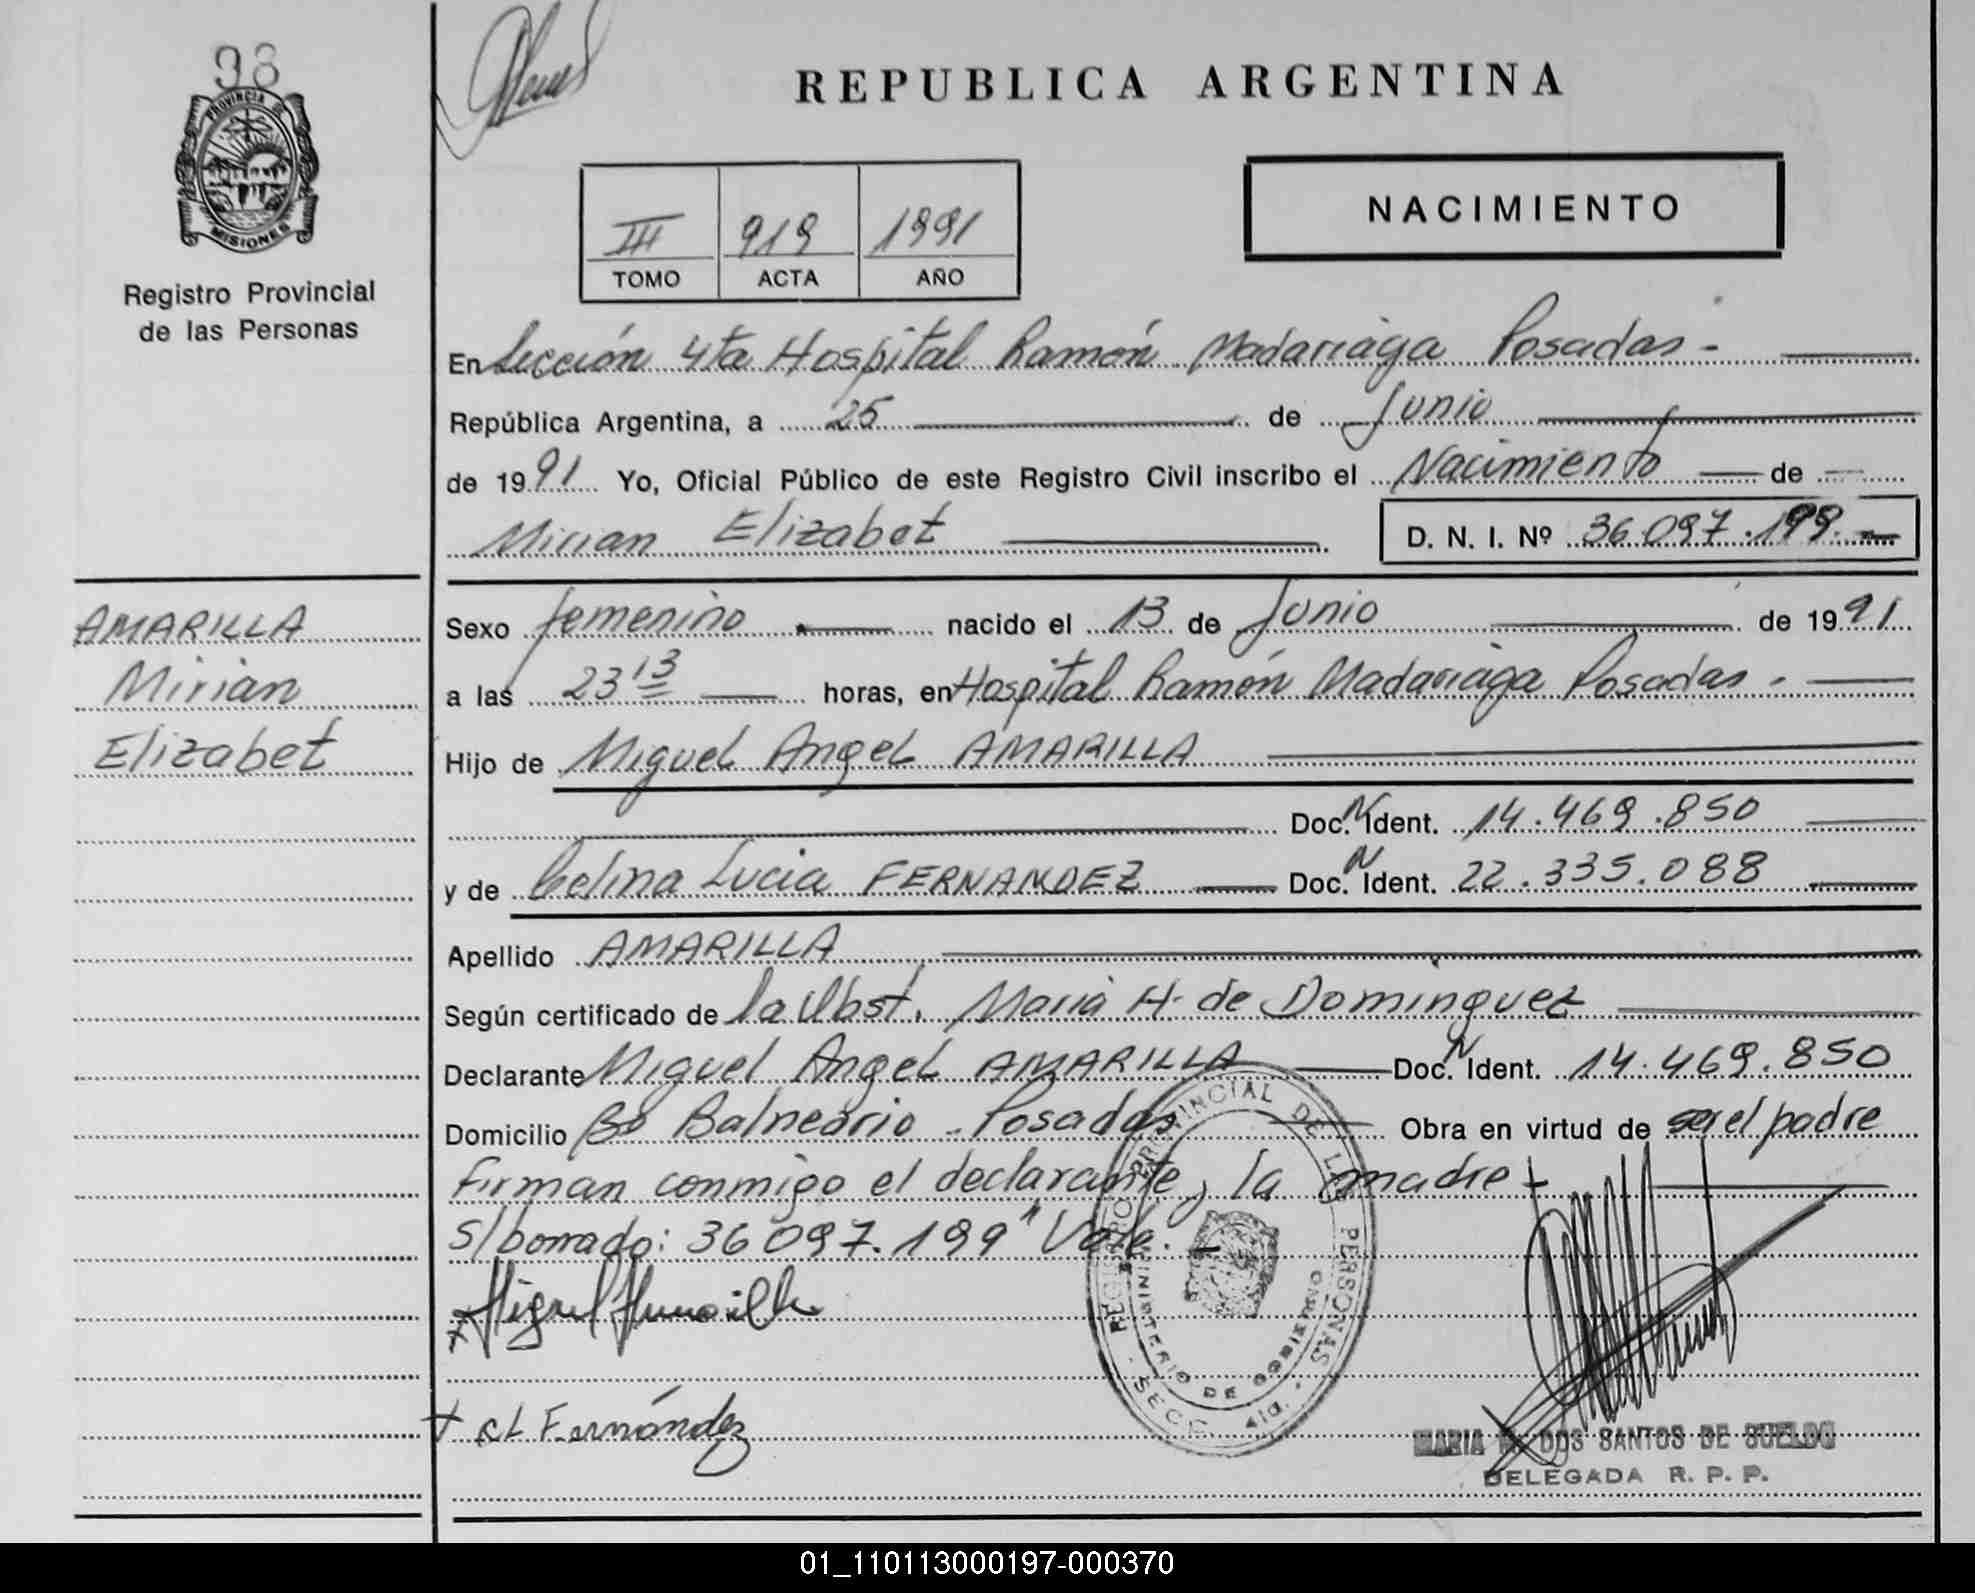 98
PROVINCIA DE
MISIONES
Registro Provincial
de las Personas
REPUBLICA ARGENTINA
III 919 1991
TOMO ACTA AÑO
NACIMIENTO
En Sección 4ta Hospital Ramón Madariaga Posadas.-
República Argentina, a 25 de Junio
de 1991 Yo, Oficial Público de este Registro Civil inscribo el Nacimiento de
Mirian Elizabet D. N. I. Nº 36.097.199.-
AMARILLA
Mirian
Elizabet
Sexo femenino nacido el 13 de Junio de 1991
a las 23 13 horas, en Hospital Ramón Madariaga Posadas.
Hijo de Miguel Angel AMARILLA
Doc. N Ident. 14.469.850
y de Celina Lucia FERNANDEZ Doc. N Ident. 22.335.088
Apellido AMARILLA
Según certificado de la Obst. Maria H. de Dominguez
Declarante Miguel Angel AMARILLA Doc. N Ident. 14.469.850
Domicilio Bº Balneario - Posadas Obra en virtud de ser el padre
Firman conmigo el declarante y la madre -
S/borrado: 36 097.199" Vale. -
Miguel Amarilla
C L Fernández
REGISTRO PROVINCIAL DE LAS PERSONAS
MINISTERIO DE GOBIERNO
SECC. 4ta.
MARIA DOS SANTOS DE SUELDO
DELEGADA R. P. P.
01_110113000197-000370